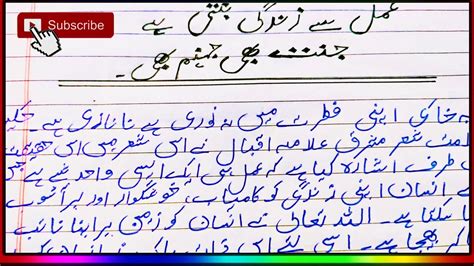 Subscribe
عمل سے زندگی بنتی ہے
جنت بھی جہنم بھی۔
یہ خاکی اپنی فطرت میں نہ نوری ہے نا ناری ہے۔ حکیم
امت شعر مشرق علامہ اقبال نے اس شعر میں اس حقیقت
کی طرف اشارہ کیا ہے کہ عمل ہی ایک ایسی واحد شے ہے جس
سے انسان اپنی زندگی کو کامیاب، خوشگوار اور پر آشوب
بنا سکتا ہے۔ اللہ تعالیٰ نے انسان کو زمین پر اپنا نائب
بنا کر بھیجا ہے۔ اسی لئے اس